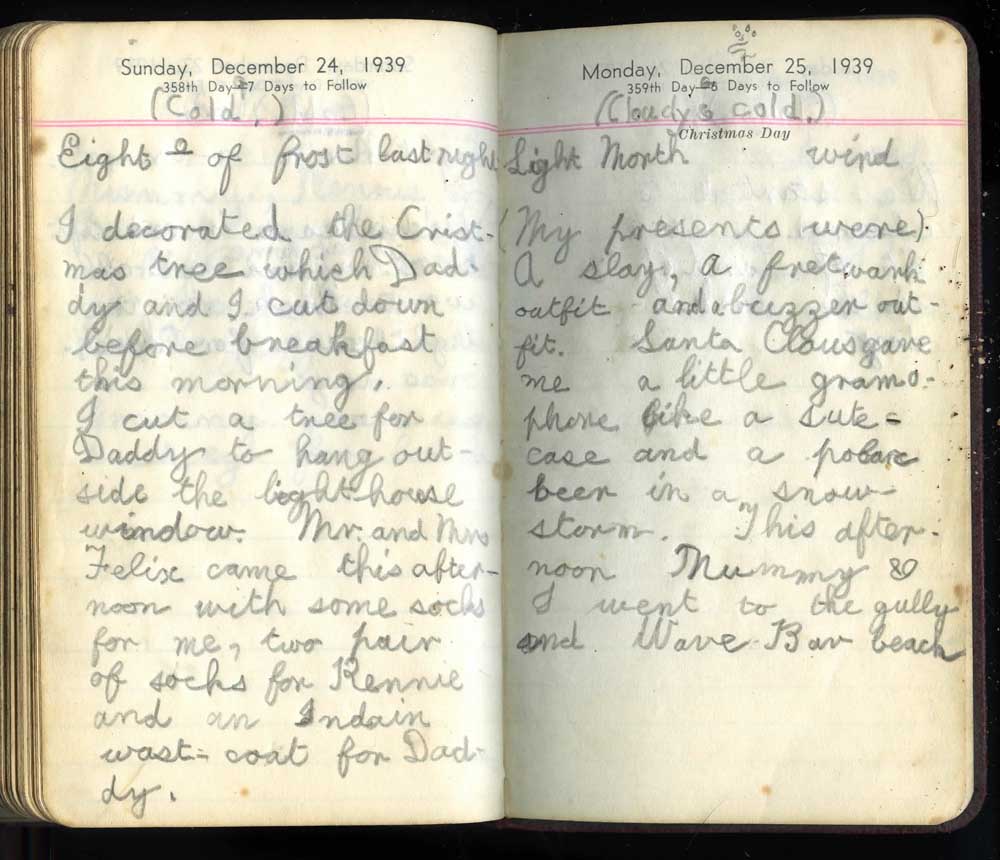 Sunday, December 24, 1939
358th Day—7 Days to Follow
(Cold.)
Eight ° of frost last night
I decorated the Crist-
mas tree which Dad-
dy and I cut down
before breakfast
this morning.
I cut a tree for
Daddy to hang out-
side the lighthouse
window. Mr. and Mrs
Felix came this after-
noon with some socks
for me, two pair
of socks for Rennie
and an Indain
wast-coat for Dad-
dy.
Monday, December 25, 1939
359th Day—6 Days to Follow
(Cloudy & cold.)
Christmas Day
Light North wind
(My presents were).
A slay, a fretwark
outfit and a buzzer out-
fit. Santa Claus gave
me a little gramo-
phone like a sute-
case and a polar
beer in a snow
storm. This after-
noon Mummy &
I went to the gully
and Wave Bar beach